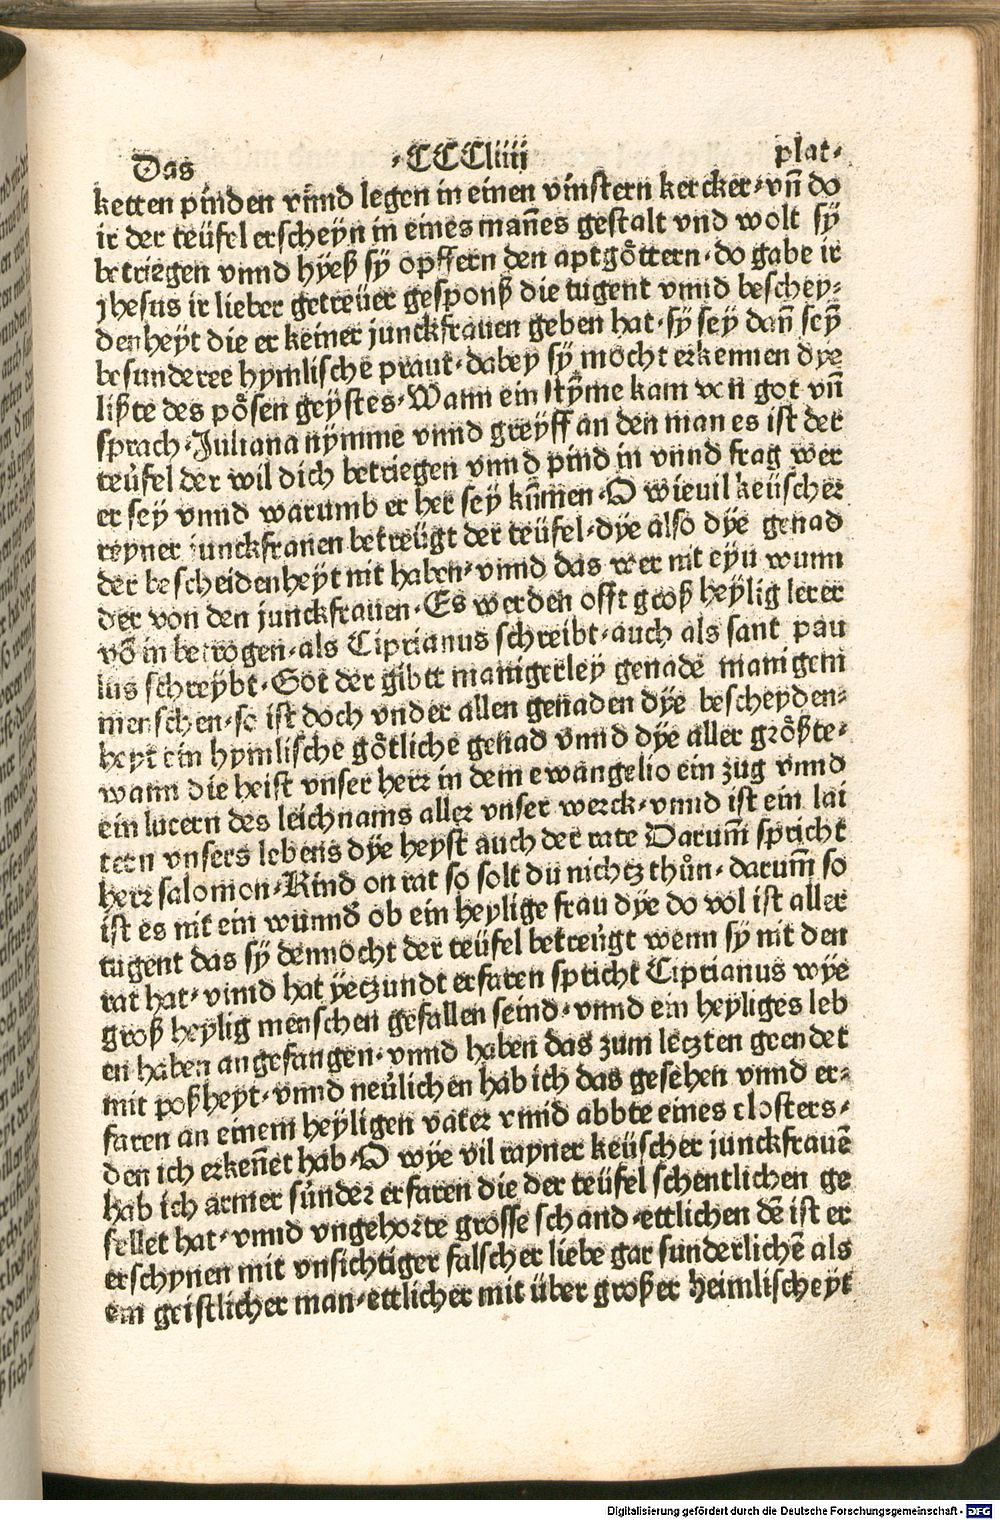 Das · CCCliiii plat·
ketten pinden vnnd legen in einen vinstern kercker· vn̄ do
ir der teüfel erscheyn in eines man̄es gestalt vnd wolt sÿ
betriegen vnnd hÿeß sÿ opffern den aptgöttern· do gabe ir
jhesus ir lieber getreüer gesponß die tugent vnnd beschey⸗
denheÿt die er keiner junckfrauen geben hat· sÿ seÿ dan̄ seȳ
besunderee hymlische praut· dabey sÿ möcht erkennen dye
lißte des pösen geÿstes· Wann ein stȳme kam von got vn̄
sprach· Juliana nÿmme vnnd greÿff an den man es ist der
teüfel der wil dich betriegen vnnd pind in vnnd frag wer
er sey vnnd warumb er her sey kūmen· O wievil keüscher
reyner junckfrauen betreügt der teüfel· dÿe also dÿe genad
der bescheidenheyt nit haben· vnnd das wer nit eyn wunn
der von den junckfrauen· Es werden offt groß heÿlig lerer
vō in betrogen· als Ciprianus schreibt· auch als sant pau
lus schreÿbt· Got der gibtt manigerley genade manigem
menschen· so ist doch vnder allen genaden dÿe bescheyden⸗
heyt ein hymlische götliche genad vnnd dÿe aller größte·
wann die heist vnser herr in dem ewangelio ein zug vnnd
ein lucern des leichnams aller vnser werck· vnnd ist ein lai
tern vnsers lebens dÿe heyst auch der rate Darum̄ spricht
herr salomon· Kind on rat so solt du nichtz thůn· darum̄ so
ist es nit ein wunnd̄ ob ein heylige frau dÿe do vol ist aller
tugent das sÿ dennocht der teüfel betreügt wenn sÿ nit den
rat hat· vnnd hat ÿetzundt erfaren spricht Ciprianus wÿe
groß heylig menschen gefallen seind· vnnd ein heyliges leb
en haben angefangen· vnnd haben das zum letzten geendet
mit poßheyt· vnnd neülichen hab ich das gesehen vnnd er⸗
faren an einem heyligen vater vnnd abbte eines closters·
den ich erken̄et hab· O wÿe vil rayner keüscher junckfrauē
hab ich armer sünder erfaren die der teüfel schentlichen ge
fellet hat· vnnd vngehorte grosse schand· ettlichen dē ist er
erschynen mit vnsichtiger falscher liebe gar sunderlichē als
ein geistlicher man· ettlicher mit über großer heimlischeyt
Digitalisierung gefördert durch die Deutsche Forschungsgemeinschaft - DFG